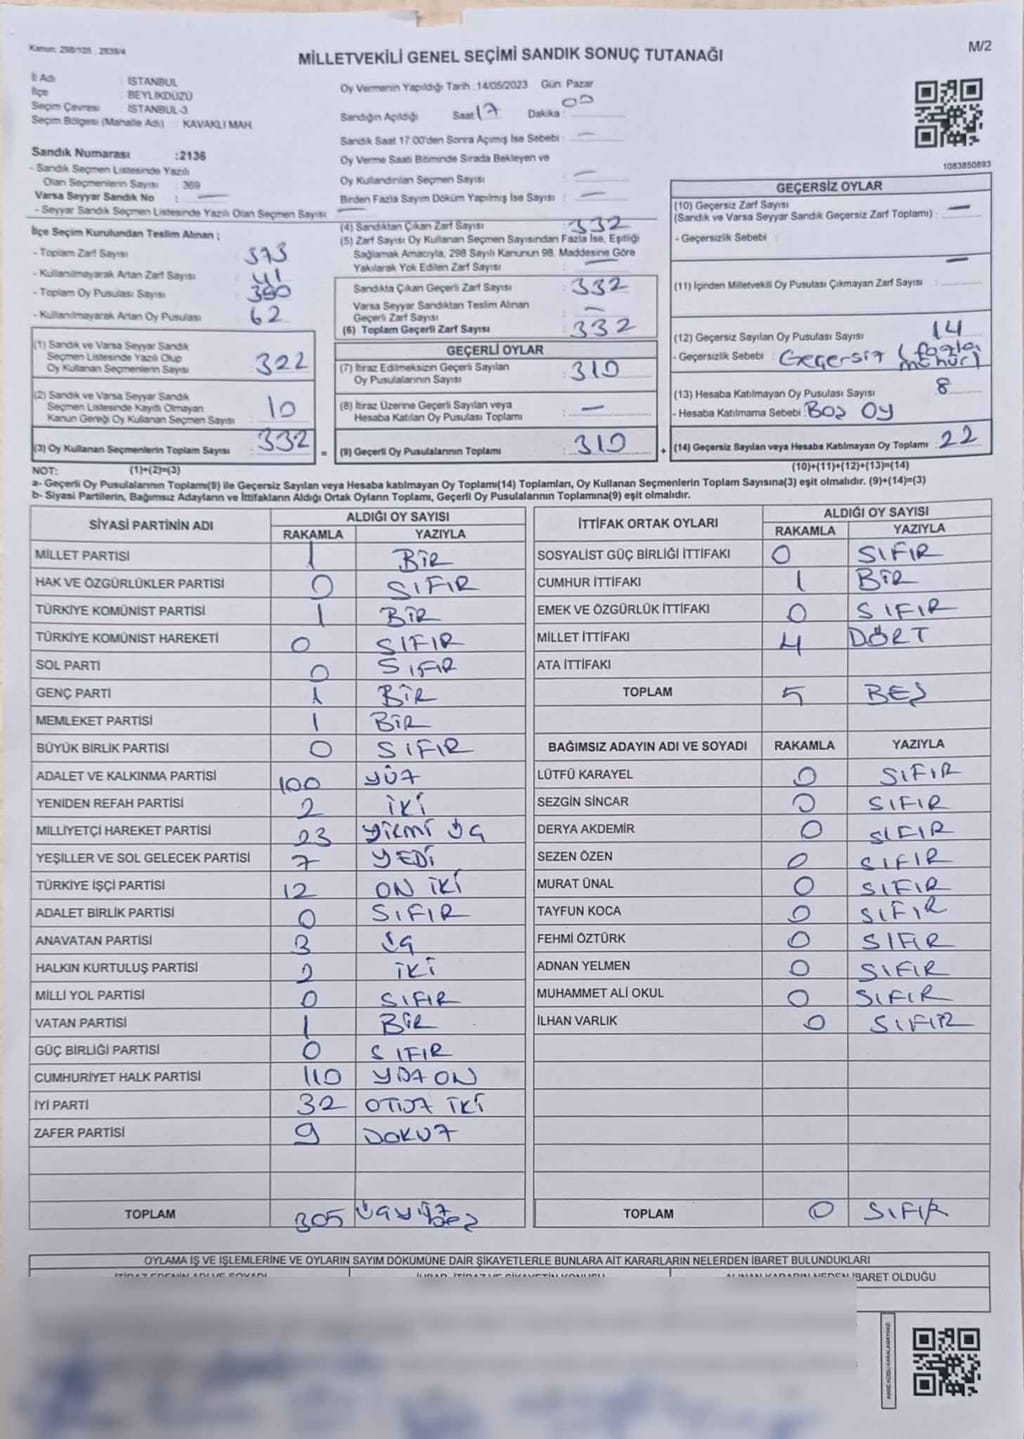 Kanun: 298/105 ; 2839/4
MİLLETVEKİLİ GENEL SEÇİMİ SANDIK SONUÇ TUTANAĞI
M/2
İl Adı : İSTANBUL
İlçe : BEYLİKDÜZÜ
Seçim Çevresi : İSTANBUL-3
Seçim Bölgesi (Mahalle Adı) : KAVAKLI MAH.
Sandık Numarası :2136
- Sandık Seçmen Listesinde Yazılı
Olan Seçmenlerin Sayısı : 369
Varsa Seyyar Sandık No : —
- Seyyar Sandık Seçmen Listesinde Yazılı Olan Seçmen Sayısı : —
Oy Vermenin Yapıldığı Tarih :14/05/2023 Gün: Pazar
Sandığın Açıldığı Saat 17 Dakika : 00
Sandık Saat 17:00'den Sonra Açmış İse Sebebi : —
Oy Verme Saati Bitiminde Sırada Bekleyen ve
Oy Kullandırılan Seçmen Sayısı : —
Birden Fazla Sayım Döküm Yapılmış İse Sayısı : —
1083850893
İlçe Seçim Kurulundan Teslim Alınan ;
- Toplam Zarf Sayısı : 373
- Kullanılmayarak Artan Zarf Sayısı : 41
- Toplam Oy Pusulası Sayısı :
- Kullanılmayarak Artan Oy Pusulası : 62
(1) Sandık ve Varsa Seyyar Sandık
Seçmen Listesinde Yazılı Olup
Oy Kullanan Seçmenlerin Sayısı : 322
(2) Sandık ve Varsa Seyyar Sandık
Seçmen Listesinde Kayıtlı Olmayan
Kanun Gereği Oy Kullanan Seçmen Sayısı : 10
(3) Oy Kullanan Seçmenlerin Toplam Sayısı : 332
(4) Sandıktan Çıkan Zarf Sayısı : 332
(5) Zarf Sayısı Oy Kullanan Seçmen Sayısından Fazla İse, Eşitliği
Sağlamak Amacıyla, 298 Sayılı Kanunun 98. Maddesine Göre
Yakılarak Yok Edilen Zarf Sayısı : —
Sandıkta Çıkan Geçerli Zarf Sayısı : 332
Varsa Seyyar Sandıktan Teslim Alınan
Geçerli Zarf Sayısı : —
(6) Toplam Geçerli Zarf Sayısı : 332
GEÇERLİ OYLAR
(7) İtiraz Edilmeksizin Geçerli Sayılan
Oy Pusulalarının Sayısı : 310
(8) İtiraz Üzerine Geçerli Sayılan veya
Hesaba Katılan Oy Pusulası Toplamı : —
= (9) Geçerli Oy Pusulalarının Toplamı : 310
GEÇERSİZ OYLAR
(10) Geçersiz Zarf Sayısı
(Sandık ve Varsa Seyyar Sandık Geçersiz Zarf Toplamı) : —
- Geçersizlik Sebebi :
(11) İçinden Milletvekili Oy Pusulası Çıkmayan Zarf Sayısı : —
(12) Geçersiz Sayılan Oy Pusulası Sayısı : 14
- Geçersizlik Sebebi : Geçersiz (fazla
mühür)
(13) Hesaba Katılmayan Oy Pusulası Sayısı : 8
- Hesaba Katılmama Sebebi : BOŞ OY
+ (14) Geçersiz Sayılan veya Hesaba Katılmayan Oy Toplamı : 22
NOT: (1)+(2)=(3)
(10)+(11)+(12)+(13)=(14)
a- Geçerli Oy Pusulalarının Toplamı(9) ile Geçersiz Sayılan veya Hesaba katılmayan Oy Toplamı(14) Toplamları, Oy Kullanan Seçmenlerin Toplam Sayısına(3) eşit olmalıdır. (9)+(14)=(3)
b- Siyasi Partilerin, Bağımsız Adayların ve İttifakların Aldığı Ortak Oyların Toplamı, Geçerli Oy Pusulalarının Toplamına(9) eşit olmalıdır.
SİYASİ PARTİNİN ADI ALDIĞI OY SAYISI
RAKAMLA YAZIYLA
MİLLET PARTİSİ 1 BİR
HAK VE ÖZGÜRLÜKLER PARTİSİ 0 SIFIR
TÜRKİYE KOMÜNİST PARTİSİ 1 BİR
TÜRKİYE KOMÜNİST HAREKETİ 0 SIFIR
SOL PARTİ 0 SIFIR
GENÇ PARTİ 1 BİR
MEMLEKET PARTİSİ 1 BİR
BÜYÜK BİRLİK PARTİSİ 0 SIFIR
ADALET VE KALKINMA PARTİSİ 100 YÜZ
YENİDEN REFAH PARTİSİ 2 İKİ
MİLLİYETÇİ HAREKET PARTİSİ 23 YİRMİ ÜÇ
YEŞİLLER VE SOL GELECEK PARTİSİ 7 YEDİ
TÜRKİYE İŞÇİ PARTİSİ 12 ON İKİ
ADALET BİRLİK PARTİSİ 0 SIFIR
ANAVATAN PARTİSİ 3 ÜÇ
HALKIN KURTULUŞ PARTİSİ 2 İKİ
MİLLİ YOL PARTİSİ 0 SIFIR
VATAN PARTİSİ 1 BİR
GÜÇ BİRLİĞİ PARTİSİ 0 SIFIR
CUMHURİYET HALK PARTİSİ 110 YÜZ ON
İYİ PARTİ 32 OTUZ İKİ
ZAFER PARTİSİ 9 DOKUZ
TOPLAM 305 ÜÇYÜZ BEŞ
İTTİFAK ORTAK OYLARI ALDIĞI OY SAYISI
RAKAMLA YAZIYLA
SOSYALİST GÜÇ BİRLİĞİ İTTİFAKI 0 SIFIR
CUMHUR İTTİFAKI 1 BİR
EMEK VE ÖZGÜRLÜK İTTİFAKI 0 SIFIR
MİLLET İTTİFAKI 4 DÖRT
ATA İTTİFAKI
TOPLAM 5 BEŞ
BAĞIMSIZ ADAYIN ADI VE SOYADI RAKAMLA YAZIYLA
LÜTFÜ KARAYEL 0 SIFIR
SEZGİN SİNCAR 0 SIFIR
DERYA AKDEMİR 0 SIFIR
SEZEN ÖZEN 0 SIFIR
MURAT ÜNAL 0 SIFIR
TAYFUN KOCA 0 SIFIR
FEHMİ ÖZTÜRK 0 SIFIR
ADNAN YELMEN 0 SIFIR
MUHAMMET ALİ OKUL 0 SIFIR
İLHAN VARLIK 0 SIFIR
TOPLAM 0 SIFIR
OYLAMA İŞ VE İŞLEMLERİNE VE OYLARIN SAYIM DÖKÜMÜNE DAİR ŞİKAYETLERLE BUNLARA AİT KARARLARIN NELERDEN İBARET BULUNDUKLARI
İTİRAZ EDENİN ADI VE SOYADI İHBAR, İTİRAZ VE ŞİKAYETİN KONUSU ALINAN KARARIN NEDEN İBARET OLDUĞU